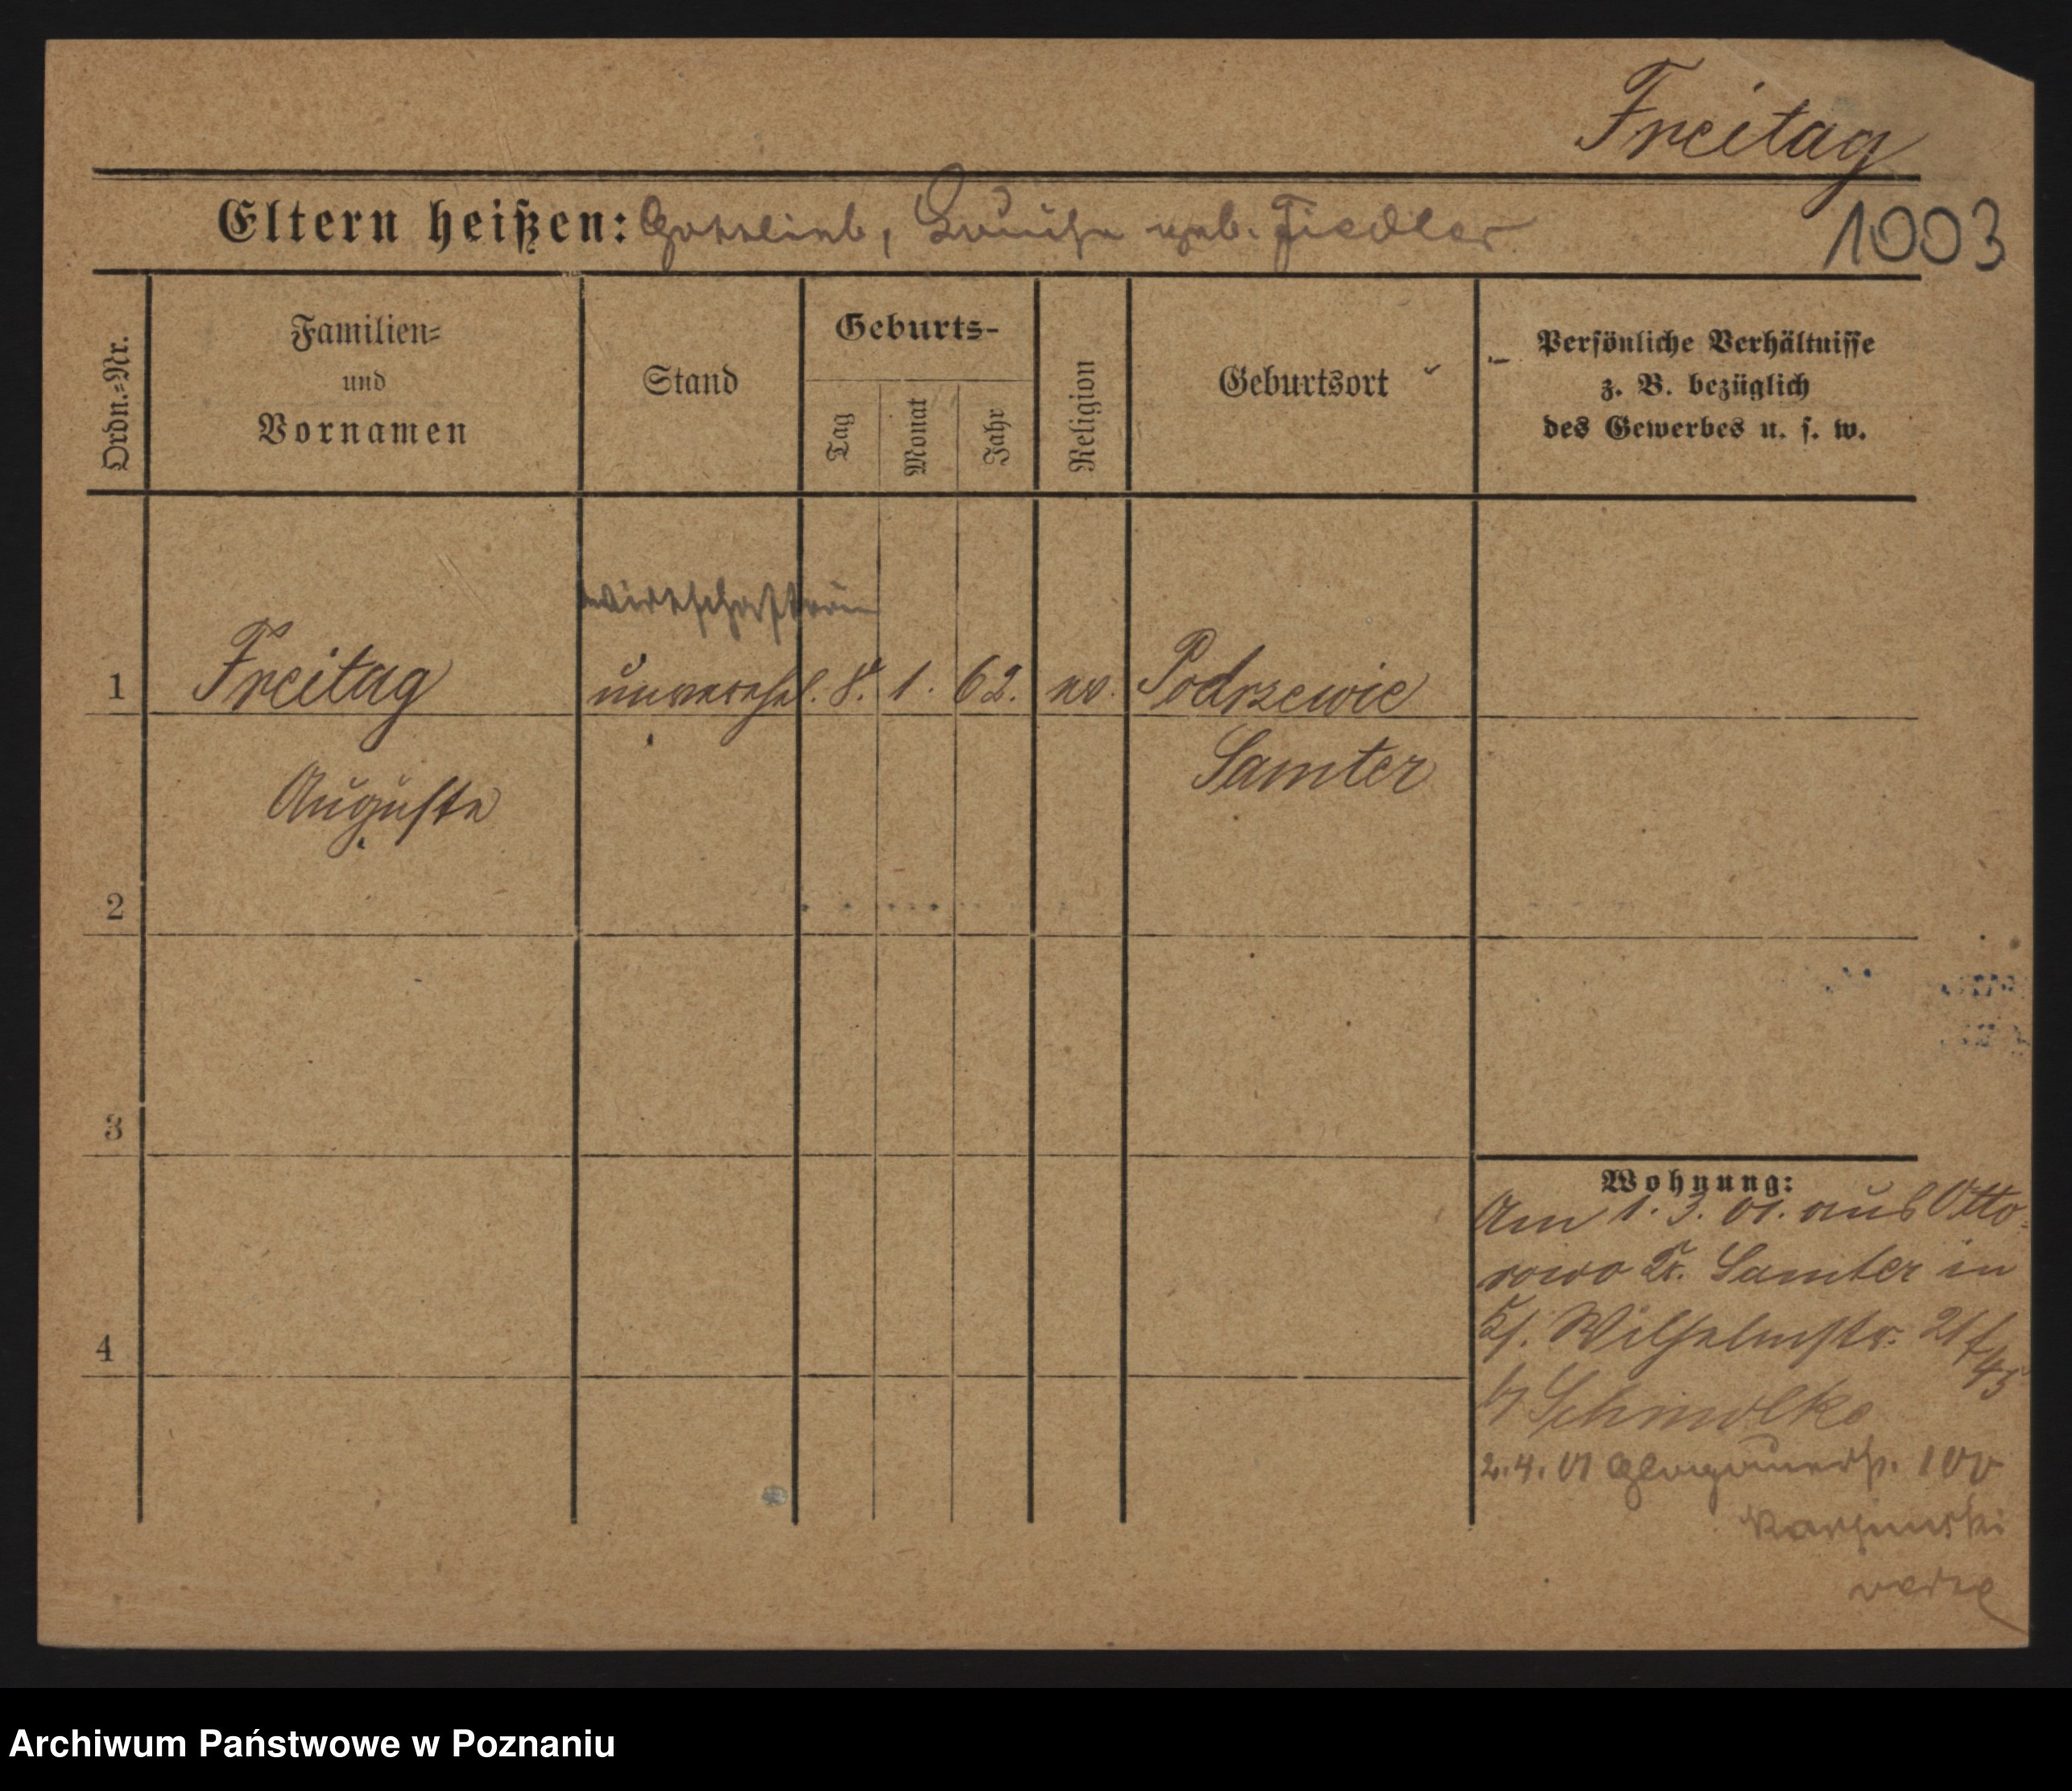 Freitag
Eltern heißen: Gottlieb, Louise geb. Fiedler
1003
Ordn.=Nr.
Familien=
und
Vornamen
Stand
Geburts-
Tag
Monat
Jahr
Religion
Geburtsort
Persönliche Verhältnisse
z. B. bezüglich
des Gewerbes u. s. w.
Wirtschafterin
1 Freitag unverehel. 8. 1. 62. ev. Podrzewie
Samter
Auguste
2
3
4
Wohnung:
Am 1. 3. 01. aus Otto=
rowo Kr. Samter in
Wilhelmstr. 21
b/ Schmolke
2.4.01 Glogauerstr. 100